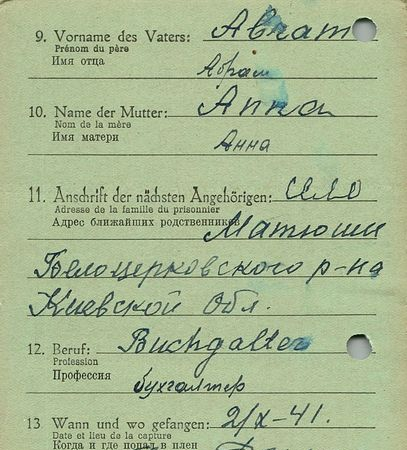 9. Vorname des Vaters: Abram
Prénom du père
Имя отца Абрам
10. Name der Mutter: Anna
Nom de la mère
Имя матери Анна
11. Anschrift der nächsten Angehörigen: село
Adresse de la famille du prisonnier
Адрес ближайших родственников Матюши
Белоцерковского р-на
Киевской обл.
12. Beruf: Buchgalter
Profession
Профессия бухгалтер
13 Wann und wo gefangen: 2/X-41.
Date et lieu de la capture
Когда и где попал в плен